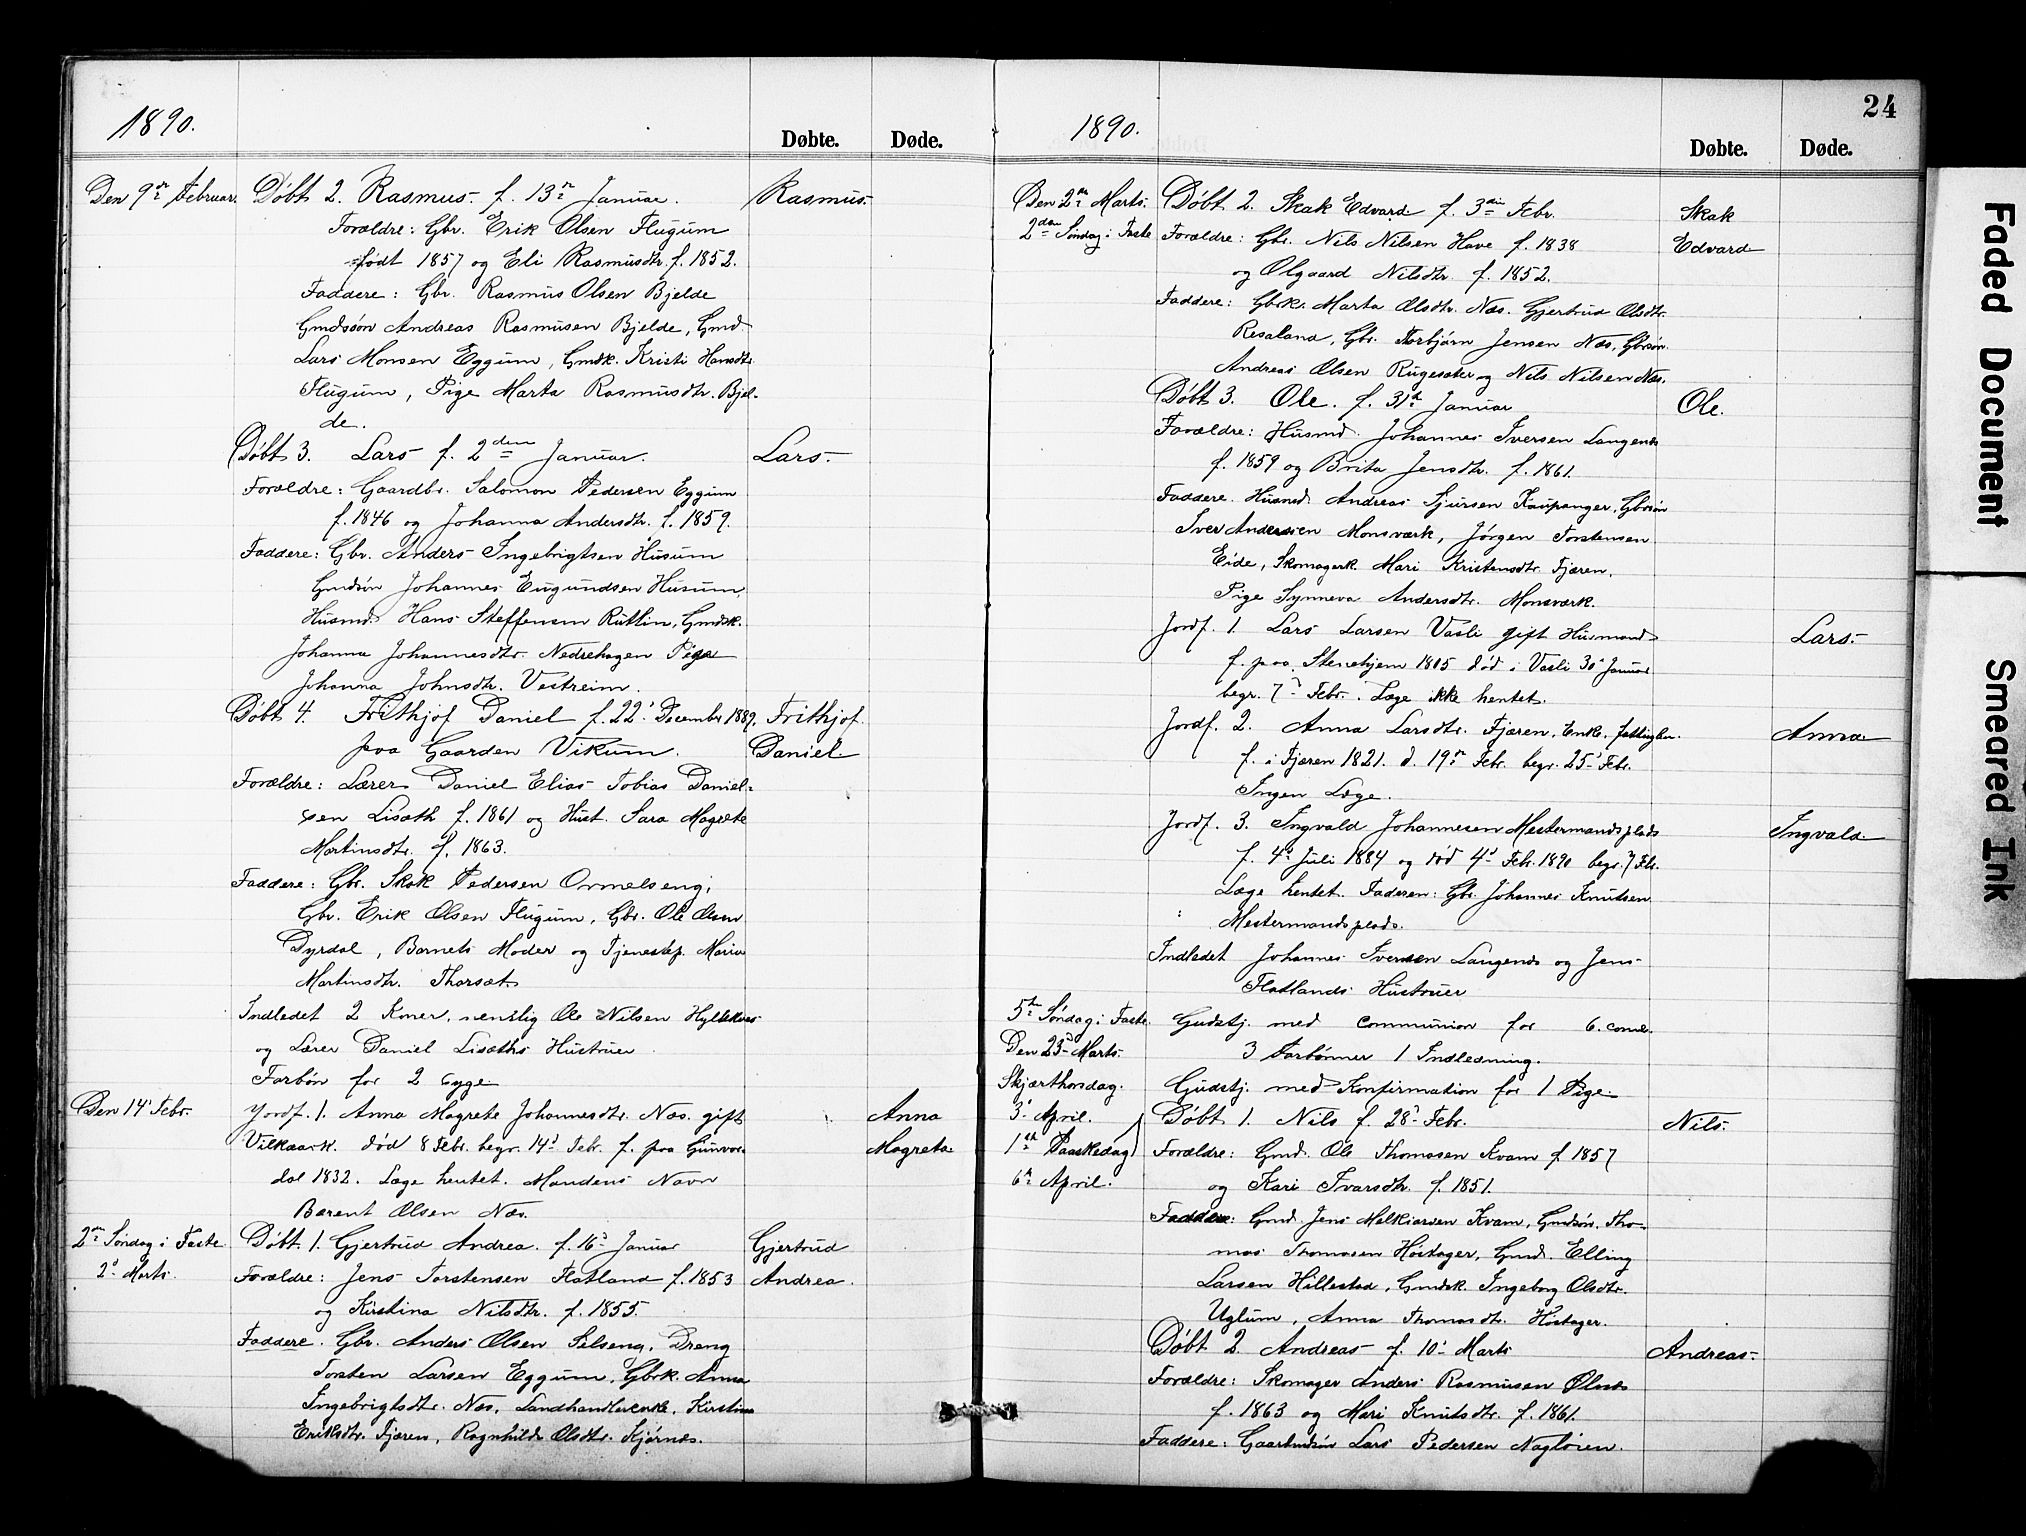 1890.
Døbte. Døde.
Den 9de Februar. Døbt 2. Rasmus. f. 13de Januar. Rasmus.
Forældre: Gbr. Erik Olsen Flugum
født 1857 og Eli Rasmusdtr. f. 1852.
Faddere: Gbr. Rasmus Olsen Bjelde
Gmdsøn Andreas Rasmusen Bjelde, Gmd.
Lars Monsen Eggum, Gmdk. Kristi Hansdtr.
Flugum, Pige Marta Rasmusdtr. Bjel-
de.
Døbt 3. Lars f. 2den Januar. Lars.
Forældre: Gaardbr. Salomon Pedersen Eggum
f. 1846 og Johanna Andersdtr. f. 1859.
Faddere: Gbr. Anders Ingebrigtsen Husum
Gmdsøn Johannes Eugundsen Husum,
Husmd. Hans Steffensen Rutlin, Gmdsk.
Johanna Johannesdtr. Nedrehagen Pige
Johanna Johnsdtr. Vestreim.
Døbt 4. Frithjof Daniel f. 22' December 1889. Frithjof
paa Gaarden Vikum. Daniel
Forældre: Lærer Daniel Elias Tobias Daniel-
sen Lisæth f. 1861 og Hust. Sara Magrete
Martinsdtr. f. 1863.
Faddere: Gbr. Skak Pedersen Ormelseng,
Gbr. Erik Olsen Flugum, Gbr. Ole Olsen
Dyrdal, Barnets Moder og Tjenestep. Maria
Martinsdtr. Thorsæt.
Indledet 2 Koner, nemlig Ole Nilsen
og Lærer Daniel Lisæths Hustruer
Forbøn for 2 syge
Den 14' Febr. Jordf. 1. Anna Magrete Johannesdtr. Næs. gift Anna
Vilkaark. død 8 Febr. begr. 14' Febr. f. paa Gunvor- Magreta
dal 1832. Læge hentet. Mandens Navn
Barent Olsen Næs.
2den Søndag i Faste Døbt 1. Gjertrud Andrea. f. 16' Januar Gjertrud
2' Marts. Forældre: Jens Torstensen Flatland f. 1853 Andrea.
og Kirstina Nilsdtr. f. 1855.
Faddere. Gbr. Anders Olsen Selseng, Dreng
Torsten Larsen Eggum, Gbrk. Anna
Ingebrigtsdtr. Næs, Landhandlerenke, Kirstina
Eriksdtr. Fjæren, Ragnhild Olsdtr. Kjørnæs.
1890.
24
Døbte. Døde.
Den 2den Marts. Døbt 2. Skak Edvard f. 3die Febr. Skak
2den Søndag i Faste Forældre: Gbr. Nils Nilsen Have f. 1838 Edvard
og Olgaard Nilsdtr. f. 1852.
Faddere: Gbrk. Marta Olsdtr. Næs. Gjertrud Olsdtr.
Resaland, Gbr. Torbjørn Jensen Næs, Gbrsøn.
Andreas Olsen Rugesater og Nils Nilsen Næs.
Døbt 3. Ole. f. 31te Januar Ole.
Forældre: Husmd. Johannes Iversen Langenes
f. 1859 og Brita Jensdtr. f. 1861.
Faddere. Husmd. Andreas Sjursen Kaupanger, Gbrsøn
Iver Andersen Monsværk, Jørgen Torstensen
Eide, Skomagerk. Mari Kristensdtr. Fjæren,
Pige Synneva Andersdtr. Monsværk.
Jordf. 1. Lars Larsen Vasli gift Husmand Lars.
f. paa Stenehjem 1805 død i Vasli 30' Januar
begr. 7' Febr. Læge ikke hentet.
Jordf. 2. Anna Larsdtr. Fjæren. Enke. fattiglem. Anna
f. i Fjæren 1821. d. 19de Febr. begr. 25' Febr.
Ingen Læge.
Jordf. 3. Ingvald Johannesen Mestermandsplads Ingvald.
f. 4' Juli 1884 og død 4' Febr. 1890 begr. 7 Feb.
Læge hentet. Faderen: Gbr. Johannes Knutsen
Mestermandsplads.
Indledet Johannes Iversen Langenes og Jens
Flatlands Hustruer
5te Søndag i Faste. Gudstj. med Communion for 6. comm.
Den 23' Marts. 3 Forbønner 1 Indledning.
Skjærthorsdag. Gudstj. med Konfirmation for 1 Pige
3' April. Døbt 1. Nils f. 28' Febr. Nils.
1ste Paaskedag Forældre: Gmd. Ole Thomasen Kvam f 1857
6te April. og Kari Ivarsdtr. f. 1851.
Faddere: Gmd. Jens Melkiorsen Kvam, Gmdsøn. Tho-
mas Thomasen Høstager, Gmd. Elling
Larsen Hillestad, Gmdsk. Ingeborg Olsdtr.
Uglum, Anna Thomasdtr. Høstager.
Døbt 2 Andreas f. 10' Marts Andreas.
Forældre: Skomager Anders Rasmusen Olnes
f. 1863 og Mari Knutsdtr. f. 1861.
Faddere: Lars Pedersen Nagløien.
Faded Document
Smeared Ink